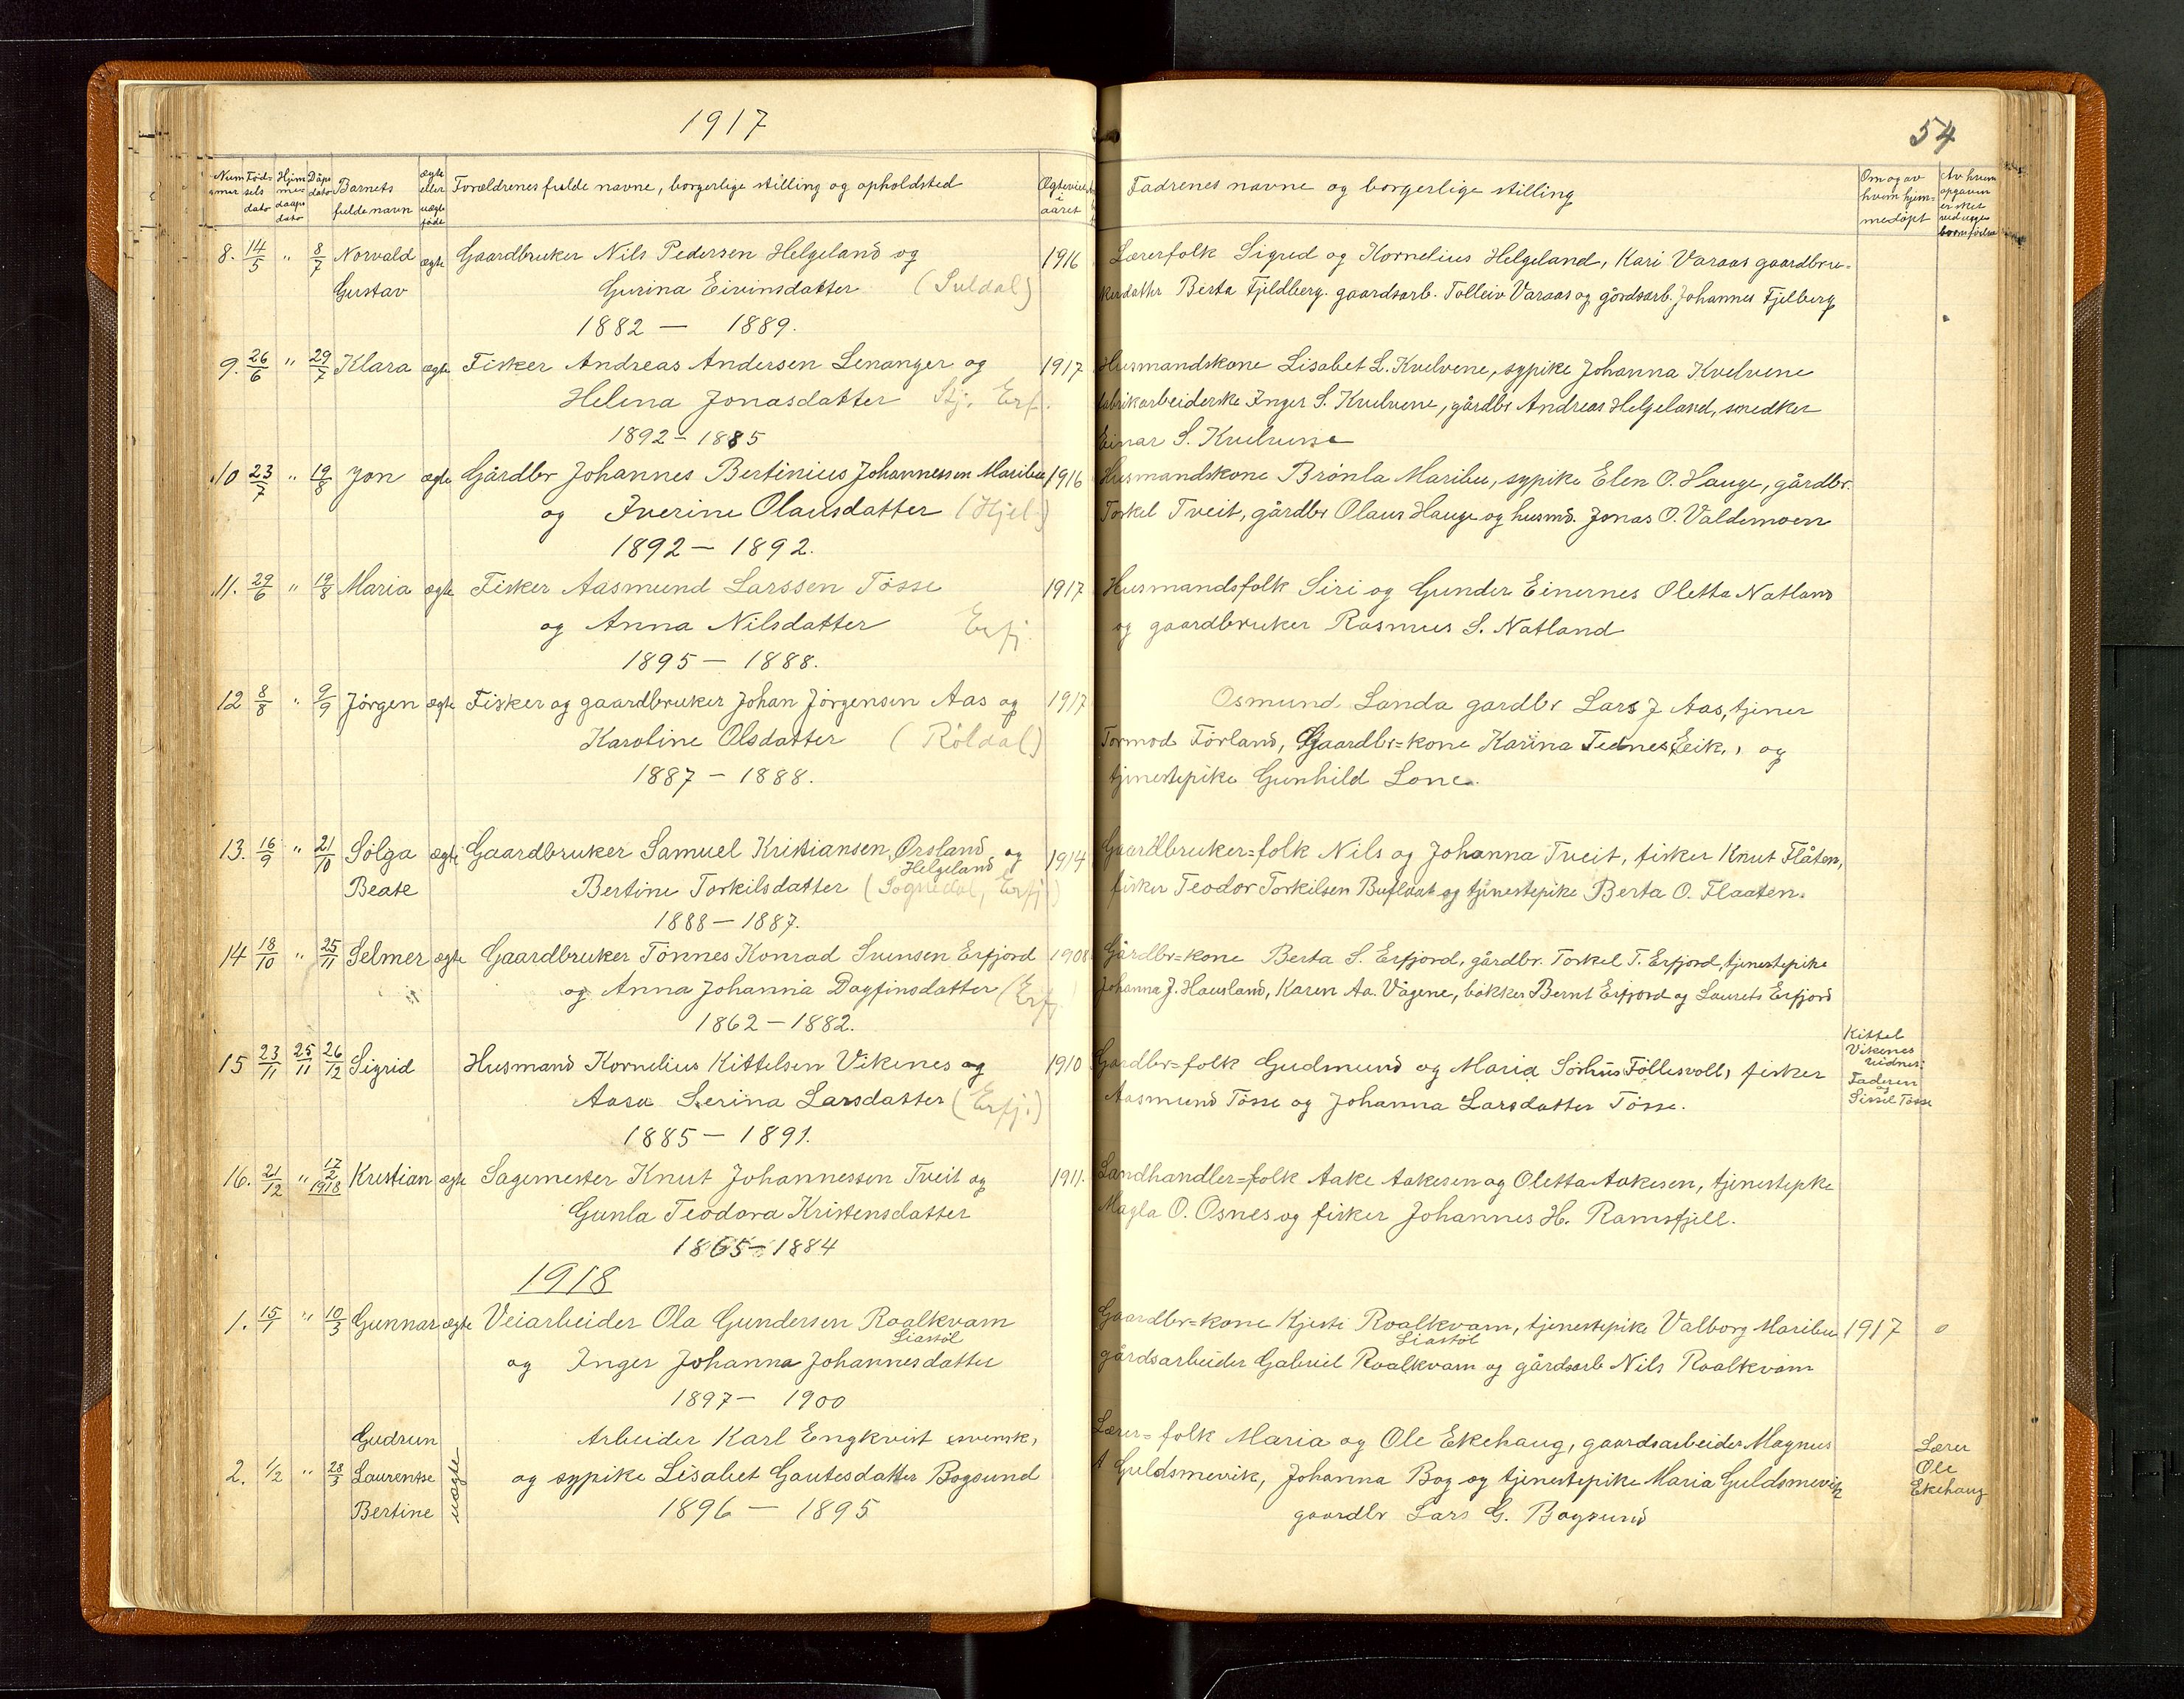 1917
54
Num mer
Fød- sels dato
Hjem me- daaps dato
Dåps dato
Barnets fulde navn
ægte eller uægte født
Forældrenes fulde navne, borgerlige stilling og opholdsted
Ægteviet i aaret
Fadrenes navne og borgerlige stilling
Om og av hvem hjem- medøpt
Av hvem opgaven er sket ved uægte barns fødsel
8. 14/5 " 8/7 Norvald ægte Gaardbruker Nils Pedersen Helgeland og 1916 Lærerfolk Sigred og Kornelius Helgeland, Kari Varaas gaardbru-
Gustav Gurina Eivinsdatter (Suldal) kerdatter Berta Fjeldberg. gaardsarb. Tolleiv Varaas og gårdsarb. Johannes Fjelberg
1882 — 1889.
9. 26/6 " 29/7 Klara ægte Fisker Andreas Andersen Lenanger og 1917 Husmandskone Lisabet L. Kvelvene, sypike Johanna Kvelvene
Helena Jonasdatter Stj. Erf. fabrikarbeiderske Inger S. Kvelvene, gårdbr Andreas Helgeland, snedker
1892 - 1885 Einar S. Kvelvene
10 23/7 " 19/8 Jon ægte Gårdbr Johannes Bertinius Johannessen Maribu 1916 Husmandskone Brønla Maribu, sypike Elen O. Hauge, gårdbr.
og Iverine Olausdatter (Hjel.) Torkel Tveit, gårdbr Olaus Hauge og husmd. Jonas O. Valdemoen
1892 — 1892.
11. 29/6 " 19/8 Maria ægte Fisker Aasmund Larssen Tøsse 1917 Husmandsfolk Siri og Gunder Einernes Oletta Natland
og Anna Nilsdatter Erfj. og gaardbruker Rasmus S. Natland
1895 — 1888.
12 8/8 " 9/9 Jørgen ægte Fisker og gaardbruker Johan Jørgensen Aas og 1917 Osmund Landa gardbr Lars J Aas, tjener
Karoline Olsdatter (Røldal) Tormod Førland, Gaardbr=kone Karina Tednes, Eik., og
1887 - 1888. tjenestepike Gunhild Lone.
13. 16/9 " 21/10 Solga ægte Gaardbruker Samuel Kristiansen, Ørsland og 1914 Gaardbruker=folk Nils og Johanna Tveit, fisker Knut Flåten,
Helgeland
Beate Bertine Torkilsdatter (Sognedal, Erfj.) fisker Teodor Torkilsen Buflaat og tjenestepike Berta O. Flaaten.
1888 — 1887.
14 18/10 " 25/11 Selmer ægte Gaardbruker Tønnes Konrad Svensen Erfjord 1908 Gårdbr=kone Berta S. Erfjord, gårdbr. Torkel T. Erfjord, tjenestepike
og Anna Johanna Dagfinsdatter (Erf. Johanna J. Hausland, Karen Aa. Vågene, bøkker Bernt Erfjord og Laurets Erfjord
1862 — 1882.
15 23/11 25/11 26/12 Sigrid Husmand Kornelius Kittelsen Vikenes og 1910 Gaardbr=folk Gudmund og Maria Sørhus Føllesvoll, fisker
Kittel Vikenes vidner: Faderen og Sissel Tøsse
Aasa Serina Larsdatter (Erfj.) Aasmund Tøsse og Johanna Larsdatter Tøsse.
1885 — 1891.
16. 21/12 " 17/2 1918 Kristian ægte Sagemester Knut Johannessen Tveit og 1911. Landhandler=folk Aake Aakesen og Oletta Aakesen, tjenestepke
Gunla Teodora Kristensdatter Magla O. Osnes og fisker Johannes H. Ramsfjell.
1865 - 1884
1918
1. 15/1 " 10/3 Gunnar ægte Veiarbeider Ola Gundersen Roalkvam Gaardbr=kone Kjersti Roalkvam, tjenestepike Valborg Maribu 1917 0
Liastøl Liastøl
og Inger Johanna Johannesdatter gårdsarbeider Gabriel Roalkvam og gårdsarb Nils Roalkvam
1897 — 1900
Gudrun Arbeider Karl Engkvist svensk, Lærer=folk Maria og Ole Ekehaug, gaardsarbeider Magnus Lærer
2. 1/2 " 28/3 Laurentse uægte og sypike Lisabet Gautesdatter Bogsund Guldsmevik, Johanna Bog og tjenestepike Maria Guldsmevik Ole
Ekehaug
Bertine 1896 — 1895 gaardbr Lars G. Bogsund